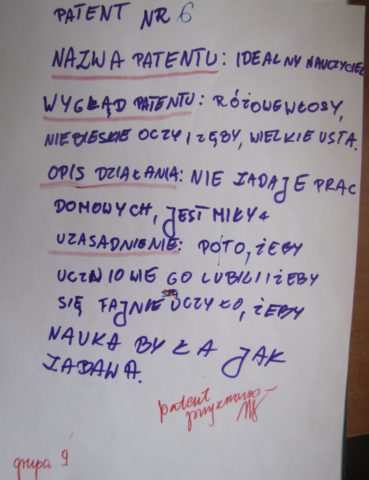 PATENT NR 6
NAZWA PATENTU: IDEALNY NAUCZYCIEL
WYGLĄD PATENTU: RÓŻOWE WŁOSY,
NIEBIESKIE OCZY I ZĘBY, WIELKIE USTA.
OPIS DZIAŁANIA: NIE ZADAJE PRAC
DOMOWYCH, JEST MIŁY
UZASADNIENIE: POTO, ŻEBY
UCZNIOWIE GO LUBILI I ŻEBY
SIĘ FAJNIE UCZYŁO, ŻEBY
NAUKA BYŁA JAK
ZABAWA.
patent
przyznano
grupa 9